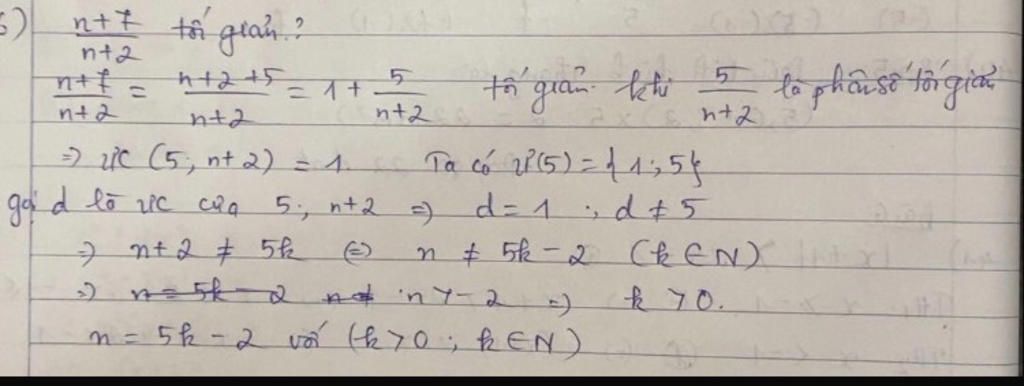 5) n+7/n+2 tối giản?
n+7/n+2 = n+2+5/n+2 = 1 + 5/n+2 tối giản khi 5/n+2 là phân số tối giản
=> ƯC (5; n+2) = 1. Ta có Ư(5) = {1; 5}
gọi d là ƯC của 5; n+2 => d = 1; d ≠ 5
=> n+2 ≠ 5k <=> n ≠ 5k - 2 (k ∈ N)
=> n = 5k - 2 n ≠ n > -2 => k > 0.
n = 5k - 2 với (k > 0; k ∈ N)